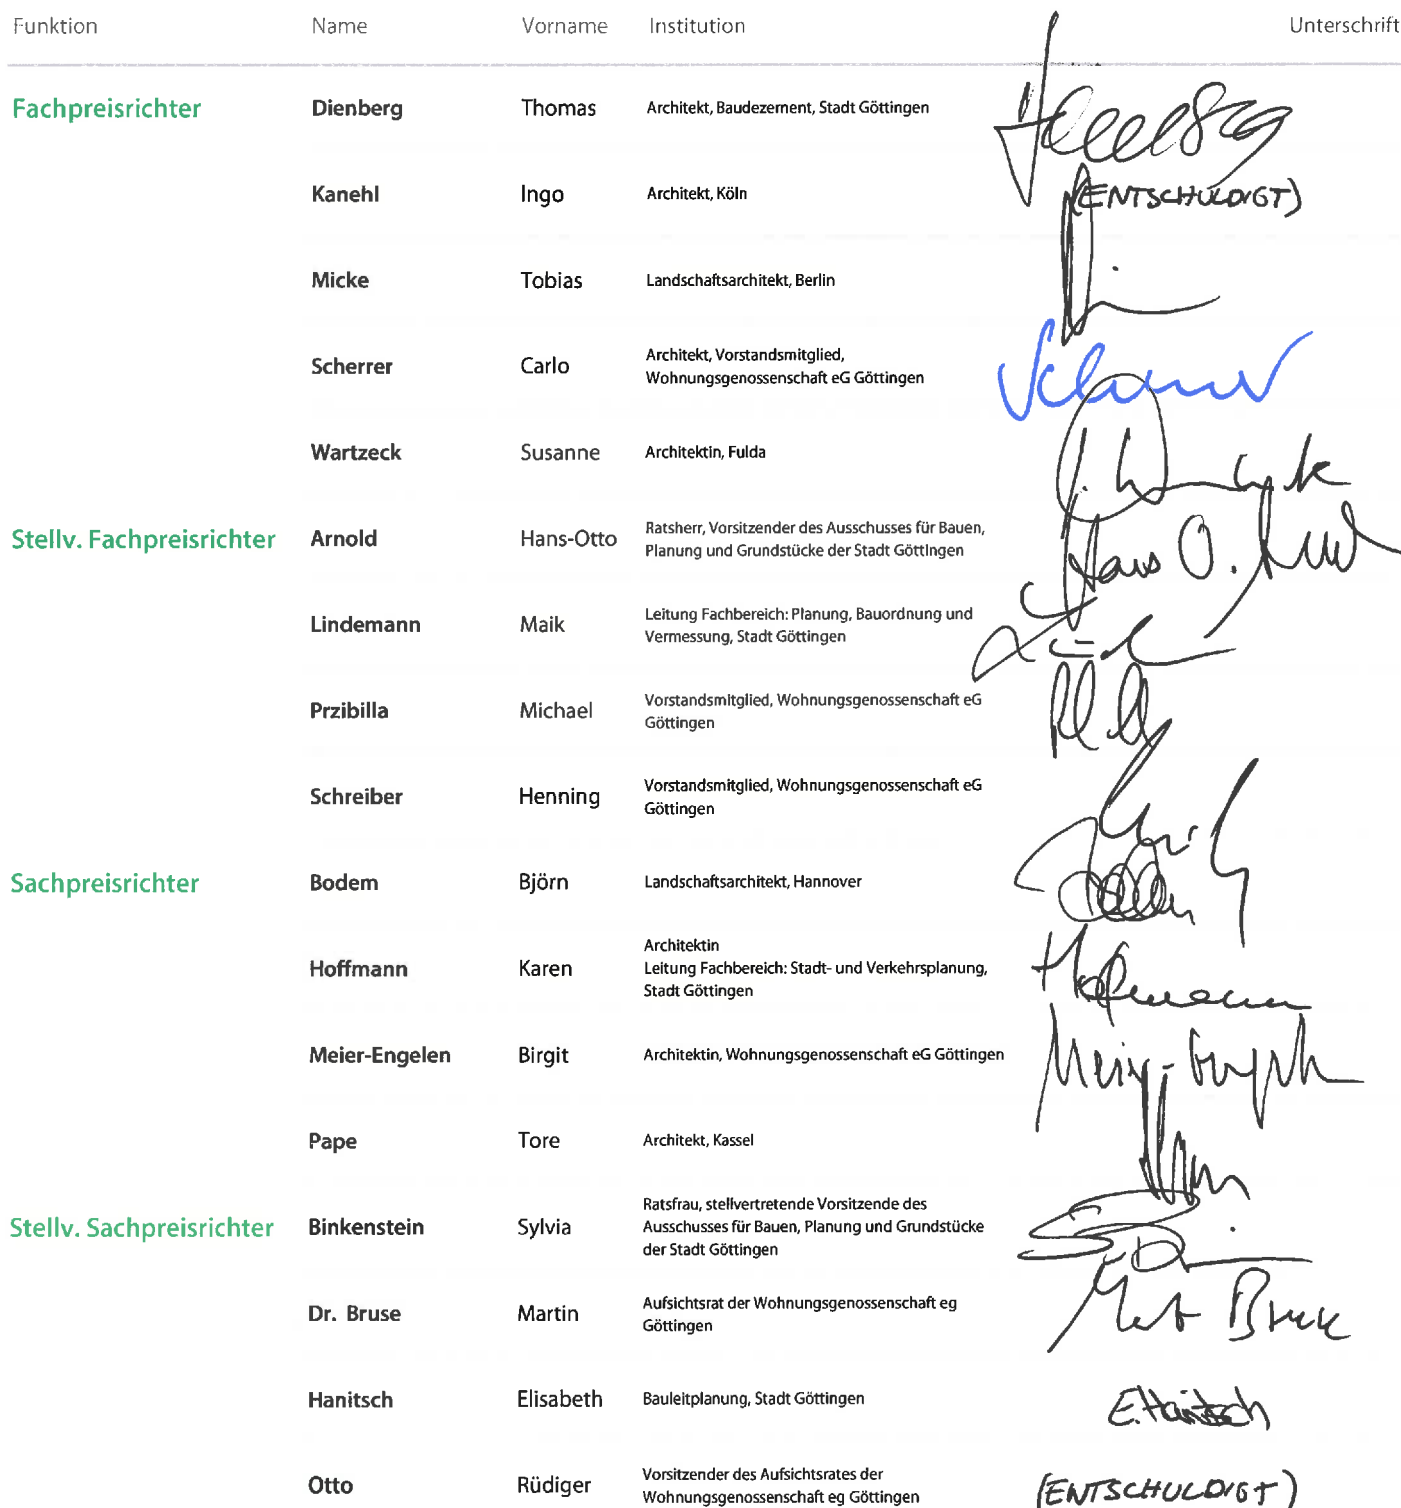 Funktion Name Vorname Institution Unterschrift
Fachpreisrichter Dienberg Thomas Architekt, Baudezernent, Stadt Göttingen
Kanehl Ingo Architekt, Köln (ENTSCHULDIGT)
Micke Tobias Landschaftsarchitekt, Berlin
Scherrer Carlo Architekt, Vorstandsmitglied,
Wohnungsgenossenschaft eG Göttingen
Wartzeck Susanne Architektin, Fulda
Stellv. Fachpreisrichter Arnold Hans-Otto Ratsherr, Vorsitzender des Ausschusses für Bauen,
Planung und Grundstücke der Stadt Göttingen
Hans O.
Lindemann Maik Leitung Fachbereich: Planung, Bauordnung und
Vermessung, Stadt Göttingen
Przibilla Michael Vorstandsmitglied, Wohnungsgenossenschaft eG
Göttingen
Schreiber Henning Vorstandsmitglied, Wohnungsgenossenschaft eG
Göttingen
Sachpreisrichter Bodem Björn Landschaftsarchitekt, Hannover
Hoffmann Karen Architektin
Leitung Fachbereich: Stadt- und Verkehrsplanung,
Stadt Göttingen
Meier-Engelen Birgit Architektin, Wohnungsgenossenschaft eG Göttingen
Pape Tore Architekt, Kassel
Stellv. Sachpreisrichter Binkenstein Sylvia Ratsfrau, stellvertretende Vorsitzende des
Ausschusses für Bauen, Planung und Grundstücke
der Stadt Göttingen
Dr. Bruse Martin Aufsichtsrat der Wohnungsgenossenschaft eg
Göttingen
Hanitsch Elisabeth Bauleitplanung, Stadt Göttingen E. Hanitsch
Otto Rüdiger Vorsitzender des Aufsichtsrates der
Wohnungsgenossenschaft eg Göttingen
(ENTSCHULDIGT)